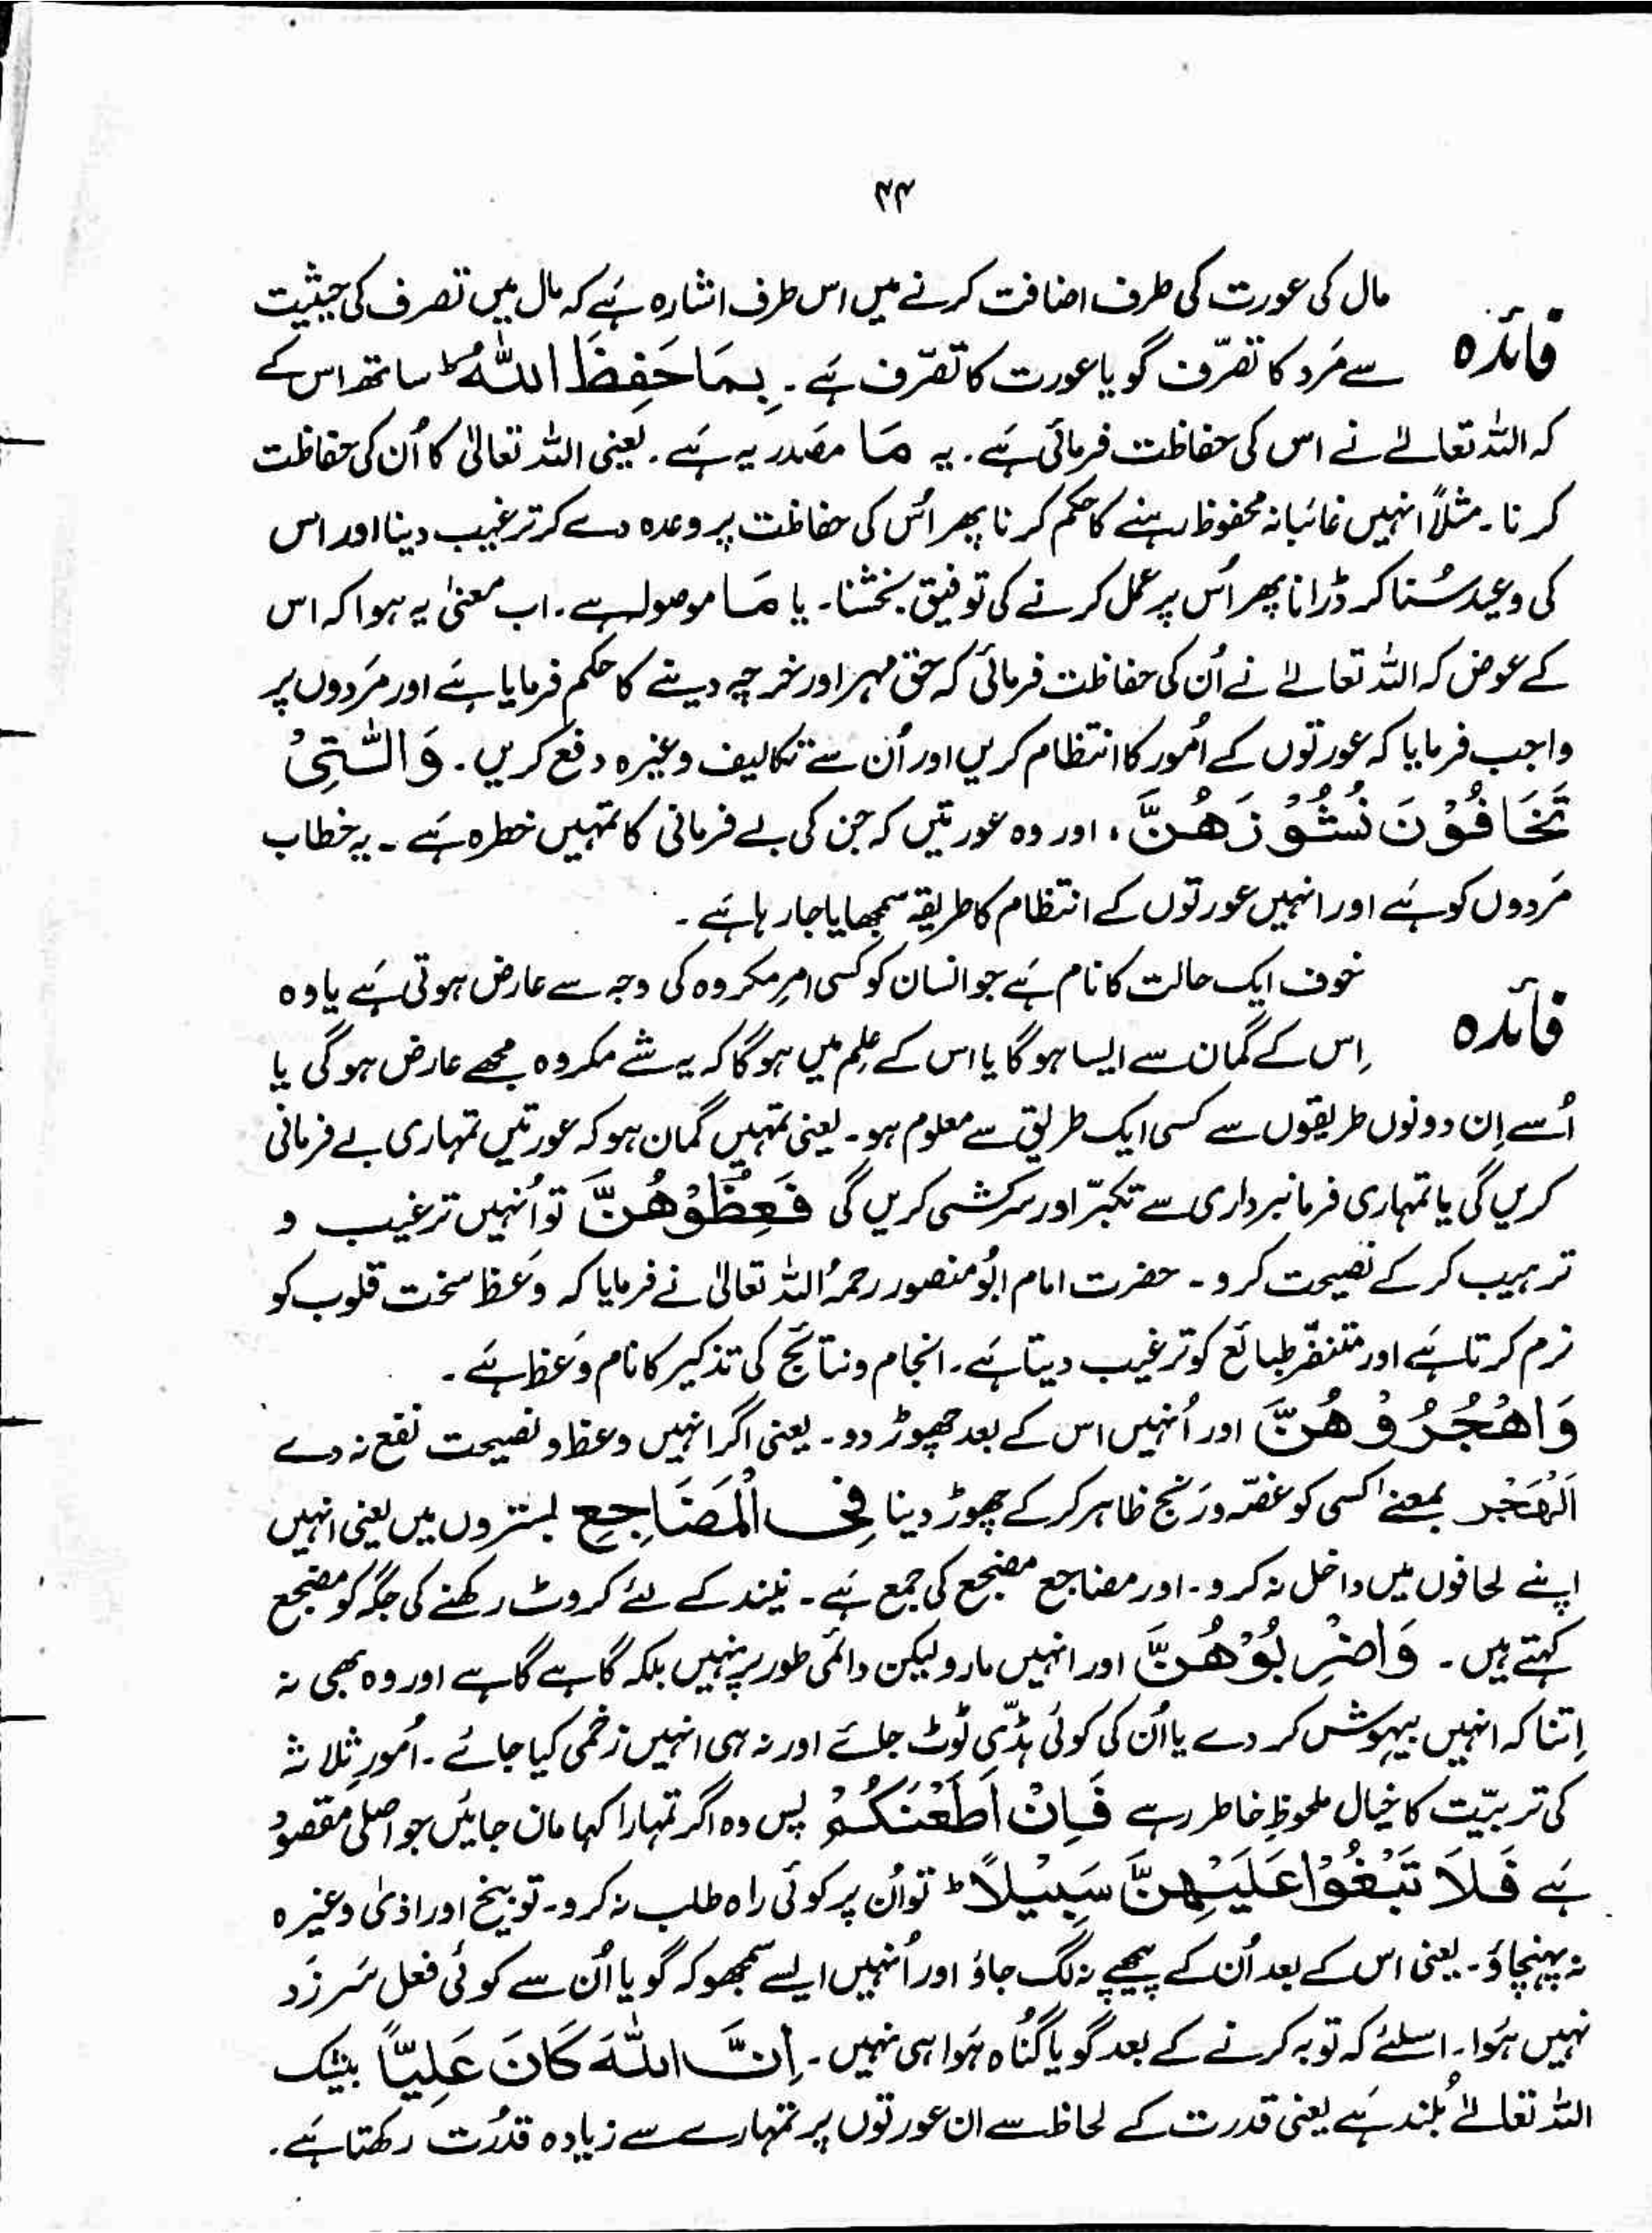 ۴۴
مال کی عورت کی طرف اضافت کرنے میں اس طرف اشارہ ہَے کہ مال میں تصرف کی حیثیت
فائدہ سے مَرد کا تصرّف گویا عورت کا تصرّف ہَے۔ بِمَا حَفِظَ اللّٰهُ ط ساتھ اس کے
کہ اللہ تعالےٰ نے اس کی حفاظت فرمائی ہَے۔ یہ مَا مصدریہ ہَے۔ یعنی اللہ تعالیٰ کا اُن کی حفاظت
کرنا۔ مثلاً انہیں غائبانہ محفوظ رہنے کا حکم کرنا پھر اُس کی حفاظت پر وعدہ دے کر ترغیب دینا اور اس
کی وعید سُنا کر ڈرانا پھر اُس پر عمل کرنے کی توفیق بخشنا۔ یا مَا موصولہ ہے۔ اب معنیٰ یہ ہوا کہ اس
کے عوض کہ اللہ تعالےٰ نے اُن کی حفاظت فرمائی کہ حق مہر اور خرچہ دینے کا حکم فرمایا ہَے اور مَردوں پر
واجب فرمایا کہ عورتوں کے اُمور کا انتظام کریں اور اُن سے تکالیف وغیرہ دفع کریں۔ وَالّٰتِیْ
تَخَافُوْنَ نُشُوْزَهُنَّ، اور وہ عورتیں کہ جن کی بے فرمانی کا تمہیں خطرہ ہَے۔ یہ خطاب
مَردوں کو ہَے اور انہیں عورتوں کے انتظام کا طریقہ سمجھایا جا رہا ہَے۔
خوف ایک حالت کا نام ہَے جو انسان کو کسی امرِ مکروہ کی وجہ سے عارض ہوتی ہَے یا وہ
فائدہ اِس کے گمان سے ایسا ہو گا یا اس کے عِلم میں ہو گا کہ یہ شے مکروہ مجھے عارض ہو گی یا
اُسے اِن دونوں طریقوں سے کسی ایک طریق سے معلوم ہو۔ یعنی تمہیں گمان ہو کہ عورتیں تمہاری بے فرمانی
کریں گی یا تمہاری فرمانبرداری سے تکبّر اور سرکشی کریں گی فَعِظُوْهُنَّ تو اُنہیں ترغیب و
ترہیب کر کے نصیحت کرو۔ حضرت امام ابُو منصور رحمہُ اللہ تعالیٰ نے فرمایا کہ وَعظ سخت قلوب کو
نرم کرتا ہَے اور متنفّر طبائع کو ترغیب دیتا ہَے۔ انجام و نتائج کی تذکیر کا نام وَعظ ہَے۔
وَاهْجُرُوْهُنَّ اور اُنہیں اس کے بعد چھوڑ دو۔ یعنی اگر انہیں وعظ و نصیحت نفع نہ دے
اَلْهَجْر بمعنےٰ کسی کو غصّہ و رَنج ظاہر کر کے چھوڑ دینا فِی الْمَضَاجِعِ بستروں میں یعنی انہیں
اپنے لحافوں میں داخل نہ کرو۔ اور مضاجع مضجع کی جمع ہَے۔ نیند کے لئے کروٹ رکھنے کی جگہ کو مضجع
کہتے ہیں۔ وَاضْرِبُوْهُنَّ اور انہیں مارو لیکن دائمی طور پر نہیں بلکہ گاہے گاہے اور وہ بھی نہ
اِتنا کہ انہیں بیہوش کر دے یا اُن کی کوئی ہڈّی ٹوٹ جائے اور نہ ہی انہیں زخمی کیا جائے۔ اُمورِ ثلاثہ
کی تربیّت کا خیال ملحوظِ خاطر رہے فَاِنْ اَطَعْنَكُمْ پس وہ اگر تمہارا کہا مان جائیں جو اصلی مقصوُد
ہَے فَلَا تَبْغُوْا عَلَيْهِنَّ سَبِيْلًا ط تو اُن پر کوئی راہ طلب نہ کرو۔ توبیخ اور اذیٰ وغیرہ
نہ پہنچاؤ۔ یعنی اس کے بعد اُن کے پیچھے نہ لگ جاؤ اور اُنہیں ایسے سمجھو کہ گویا اُن سے کوئی فعل سَرزَد
نہیں ہَوا۔ اسلئے کہ توبہ کرنے کے بعد گویا گُناہ ہَوا ہی نہیں۔ اِنَّ اللّٰهَ كَانَ عَلِيًّا بیشک
اللہ تعالےٰ بُلند ہَے یعنی قدرت کے لحاظ سے ان عورتوں پر تمہارے سے زیادہ قُدرت رکھتا ہَے۔